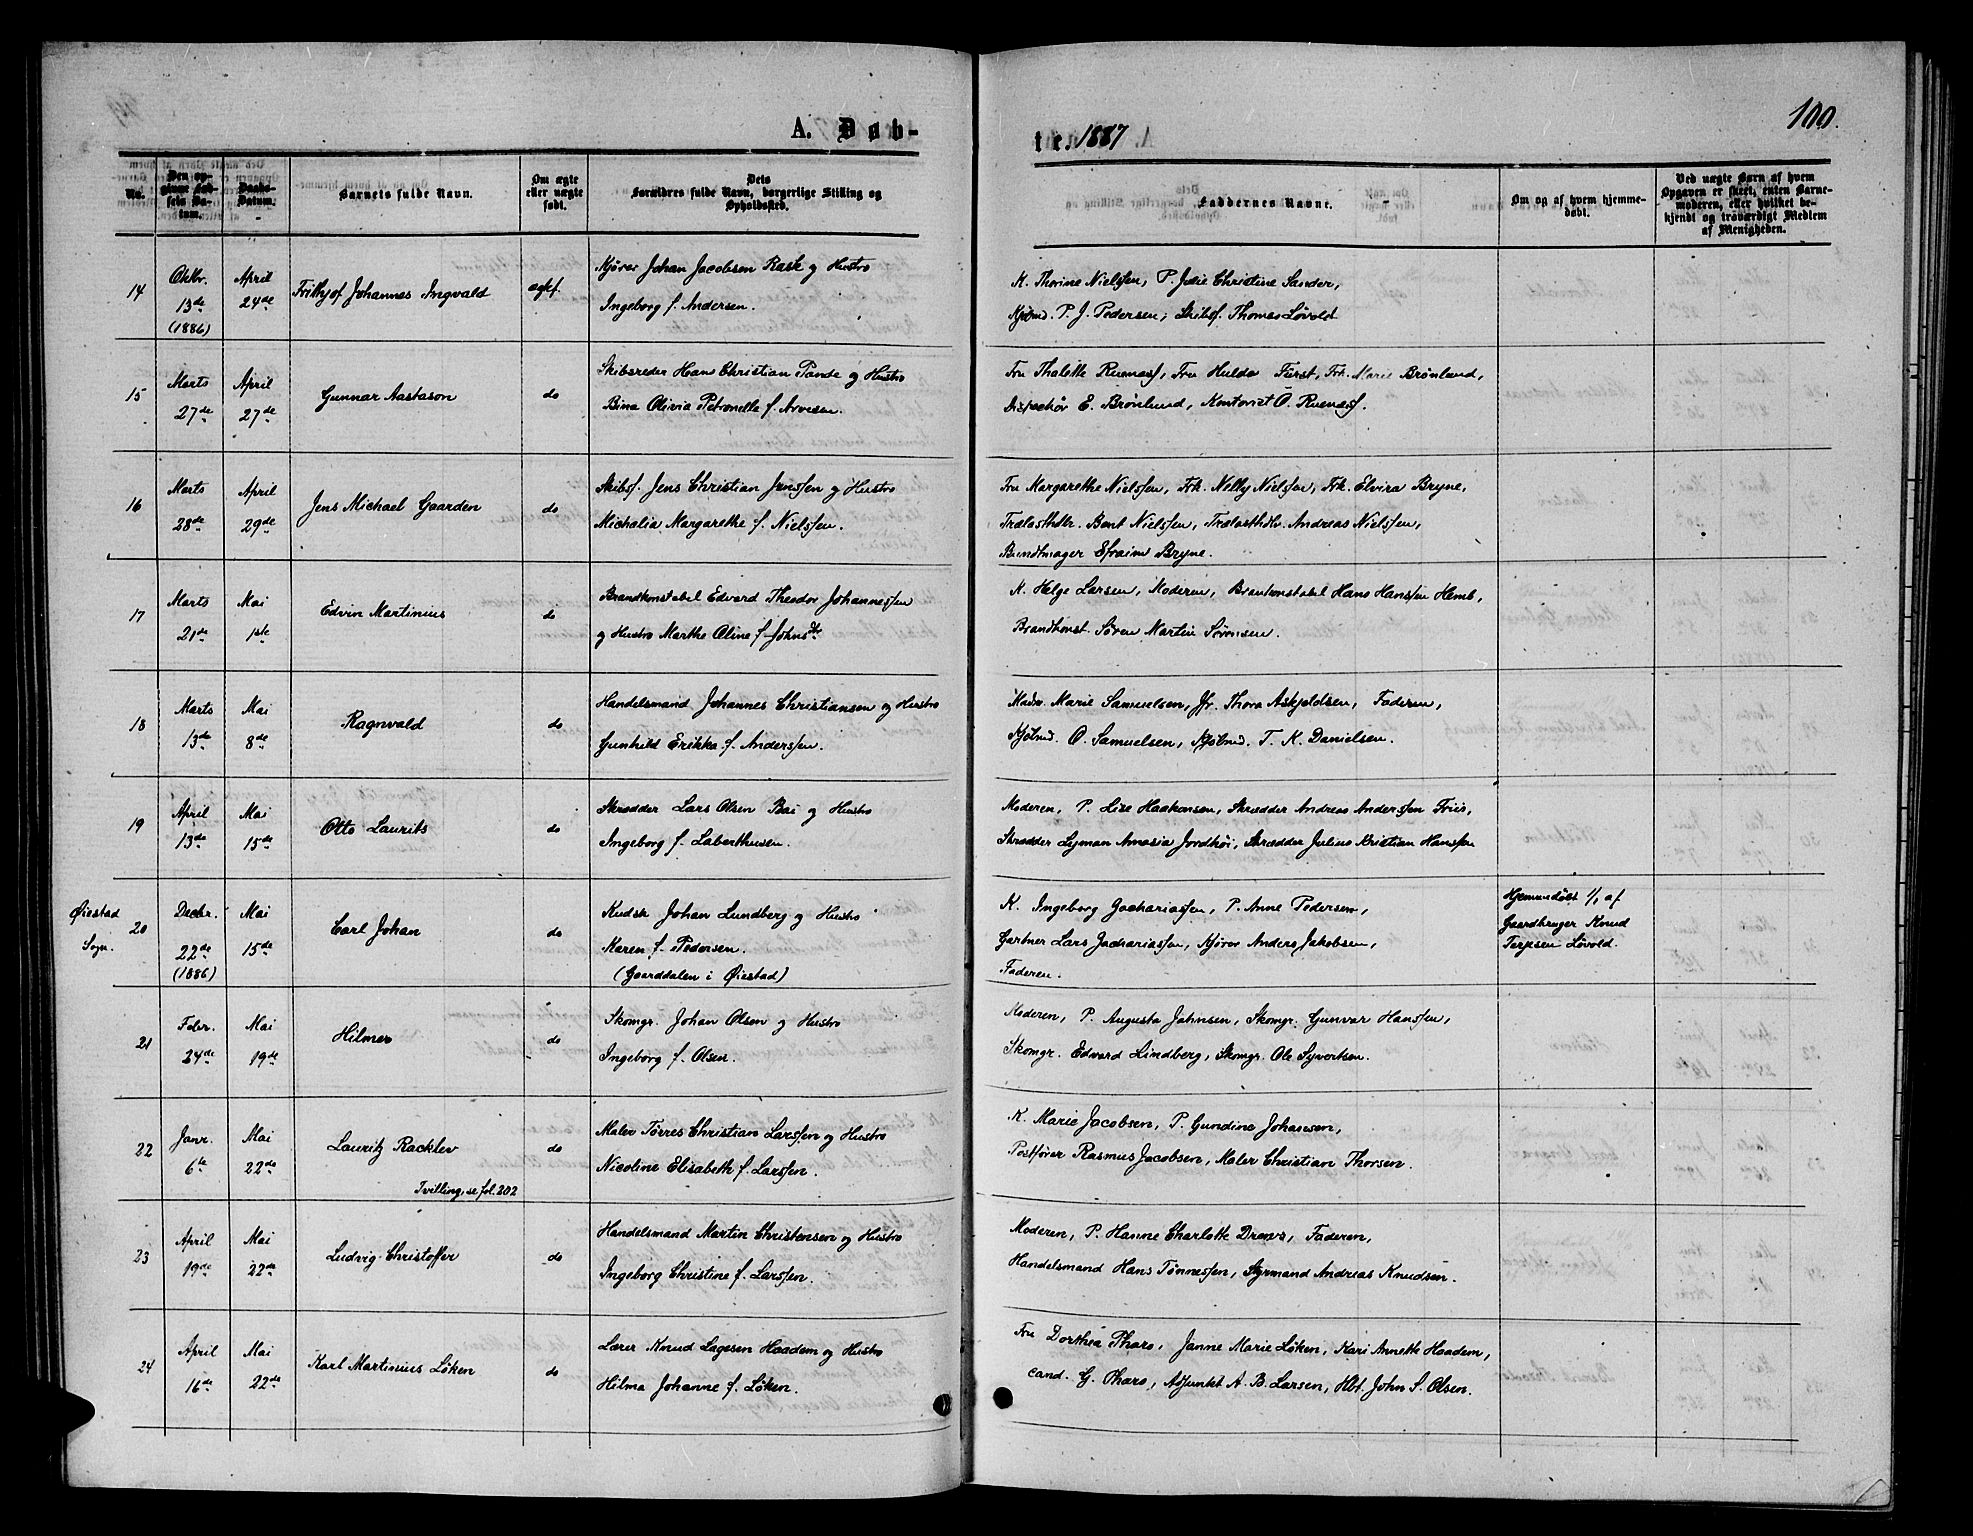 100.
A. Døb-
te. 1887
No.
Den op-
givne Fød-
sels Da-
tum.
Daabs-
Datum.
Barnets fulde Navn.
Om ægte
eller uægte
født.
Dets
Forældres fulde Navn, borgerlige Stilling og
Opholdssted.
Faddernes Navne.
Om og af hvem hjemme-
døbt.
Ved uægte Børn af hvem
Opgaven er skeet, enten Barne-
moderen, eller hvilket be-
kjendt og troværdigt Medlem
af Menigheden.
14 Oktbr. 13de (1886) April 24de Frithjof Johannes Ingvald ægte.
Kjører Johan Jacobsen Rask og Hustro
Ingeborg f. Andersen.
K. Thorine Nielsen, P. Julie Christine Sander,
Kjøbmd. P. J. Pedersen, Skibsf. Thomas Løvold
15 Marts 27de April 27de Gunnar Aastason do
Skibsreder Hans Christian Pande og Hustro
Bina Olivia Petronelle f. Arvesen.
Fru Thalette Ruenæs, Fru Hulda Fürst, Frk. Marie Brønlund,
Dispachør E. Brønlund, Kontorist O. Ruenæs.
16 Marts 28de April 29de Jens Michael Gaarden do
Skibsf. Jens Christian Jenssen og Hustro
Michalia Margarethe f. Nielssen.
Fru Margarethe Nielssen, Frk. Nelly Nielssen, Frk. Elvira Bryne,
Trælasthdlr. Bent Nielssen, Trælasthdlr. Andreas Nielssen,
Bundtmager Efraim Bryne.
17 Marts 21de Mai 1ste Edvin Martinius do
Brandkonstabel Edvard Theodor Johannessen
og Hustro Marthe Oline f. Johnsdtr
K. Helge Larsen, Moderen, Brankonstabel Hans Hanssen Hemb,
Brandkonst. Søren Martin Sørensen.
18 Marts 13de Mai 8de Ragnvald do
Handelsmand Johannes Christiansen og Hustro
Gunhild Erikka f. Anderssen.
Mad. Marie Samuelsen, Jfr. Thora Askjeldsen, Faderen,
Kjøbmd. O. Samuelsen, Kjøbmd. T. K. Danielsen.
19 April 13de Mai 15de Otto Laurits do
Skrædder Lars Olsen Bai og Hustro
Ingeborg f. Laberthusen.
Moderen, P. Lise Haakonsen, Skrædder Andreas Anderssen Friis,
Skrædder Lyman Amasia Jordhøi, Skrædder Julius Kristian Hanssen
Øiestad
Sogn.
20 Decbr. 22de (1886) Mai 15de Carl Johan do
Kudsk Johan Lundberg og Hustro
Karen f. Pedersen.
(Gaarddalen i Øiestad)
K. Ingeborg Zachariassen, P. Anne Pedersen,
Gartner Lars Zachariassen, Kjører Anders Jakobsen,
Faderen.
Hjemmedøbt 1/1 af
Gaardbruger Knud
Terjesen Løvold.
21 Febr. 24de Mai 19de Hilmer do
Skomgr. Johan Olsen og Hustro
Ingeborg f. Olsen.
Moderen, P. Augusta Johnsen, Skomgr. Gunvar Hanssen,
Skomgr. Edvard Lindberg, Skomgr. Ole Syvertsen.
22 Janr. 6te Mai 22de Lauritz Racklev do
Tvilling, se fol. 202
Maler Tørres Christian Larssen og Hustro
Nicoline Elisabeth f. Larssen.
K. Marie Jacobsen, P. Gundine Johansen,
Postfører Rasmus Jacobsen, Maler Christian Thorsen.
23 April 19de Mai 22de Ludvig Christoffer do
Handelsmand Martin Christensen og Hustro
Ingeborg Christine f. Larssen.
Moderen, P. Hanne Charlotte Drews, Faderen,
Handelsmand Hans Tønnessen, Styrmand Andreas Knudsen.
24 April 16de Mai 22de Karl Martinius Løken do
Lærer Knud Lagesen Haadem og Hustro
Hilma Johanne f. Løken.
Fru Dorthea Tharo, Janne Marie Løken, Kari Annette Haadem,
cand. G. Tharo, Adjunkt A. B. Larsen, Hbt. John S. Olsen.